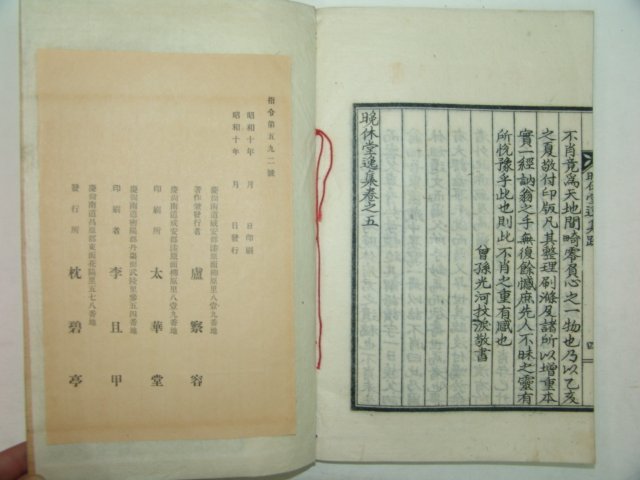 不肖竟爲天地間畸零負心之一物也乃以乙亥
之夏敬付印版凡其整理刷滌及諸所以增重本
實一經訥翁之手無復餘憾庶先人不昧之靈有
所悅豫乎此也則此不肖之重有賦也
曾孫光河抆淚敬書
晩休堂逸集卷之五
四
指令第五九二號
昭和十年 月 日印刷
昭和十年 月 日發行
慶尙南道咸安郡漆原面柳原里八壹九番地
著作兼發行者 盧 察 容
慶尙南道咸安郡漆原面柳原里八壹九番地
印刷所 太 華 堂
慶尙南道密陽郡丹場面武陵里參五四番地
印刷者 李 且 甲
慶尙南道昌原郡東面花陽里五七八番地
發行所 枕 碧 亭